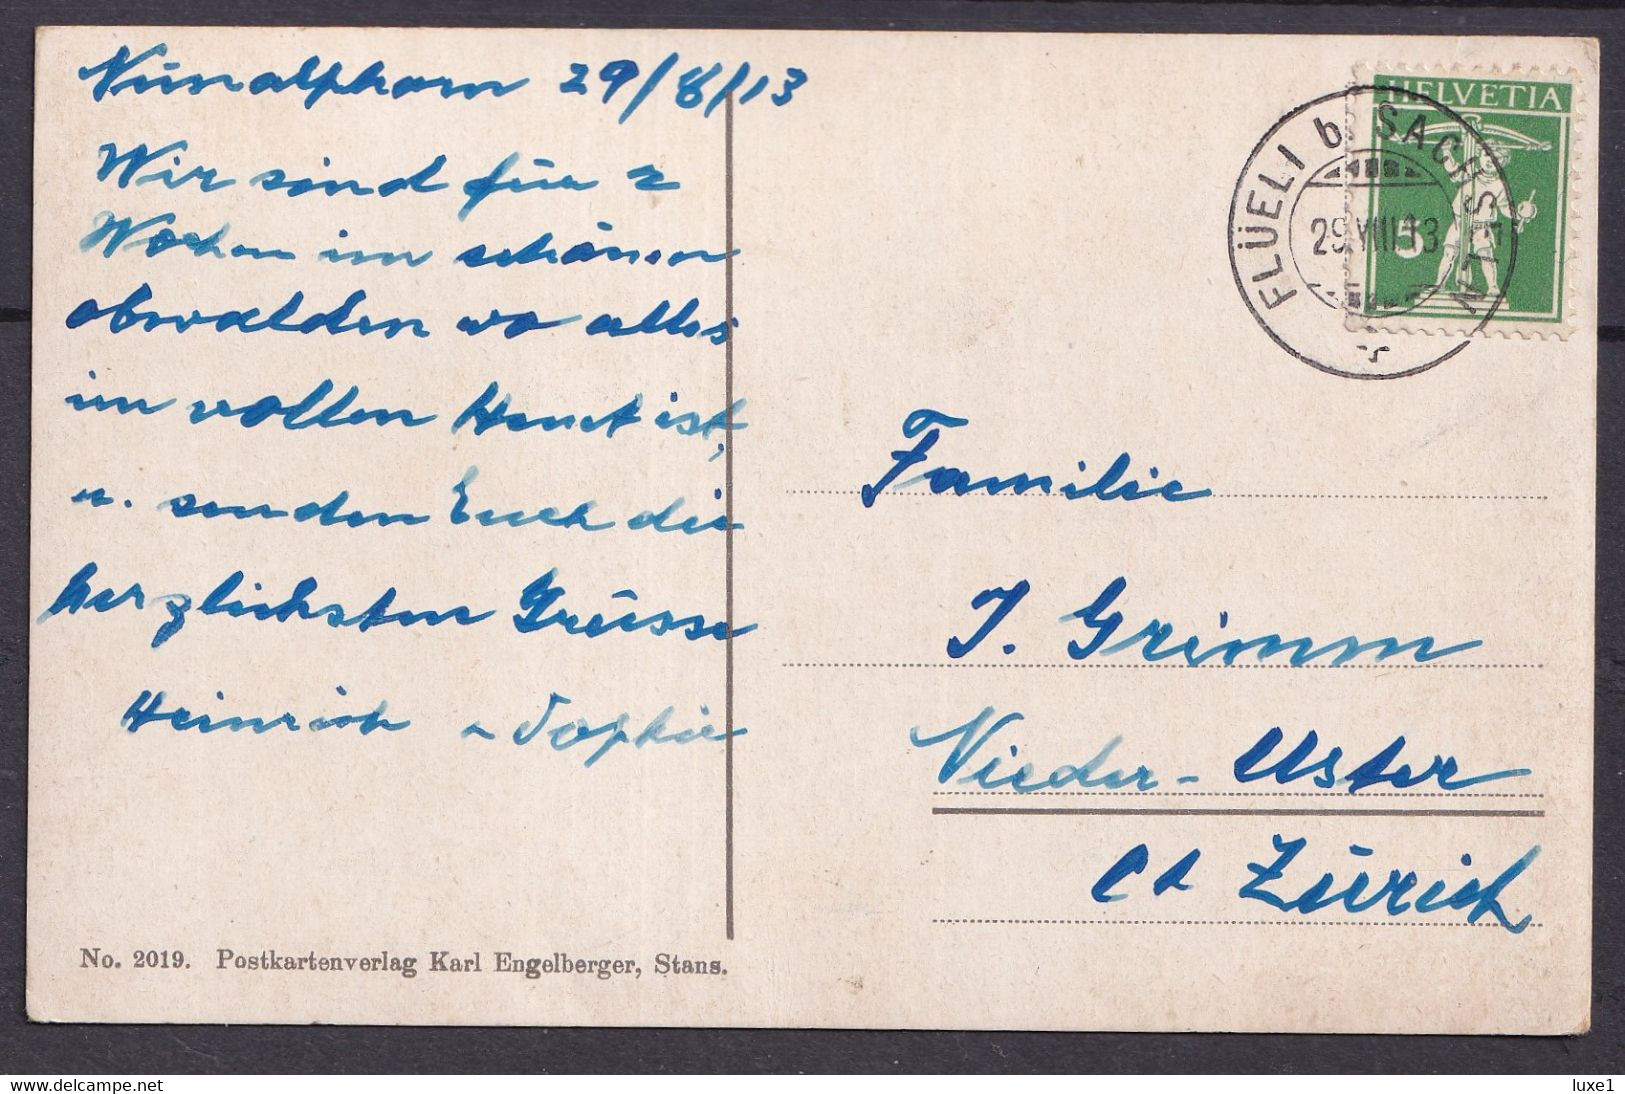 Nünalphorn 29/8/13
Wir sind für 2
Wochen im schönen
obwalden wo alles
im vollen Heuet ist,
u. senden Euch die
herzlichsten Grüsse
Heinrich u Sophie
No. 2019. Postkartenverlag Karl Engelberger, Stans.
HELVETIA
5
FLÜELI b. SACHSELN
29.VIII.13
Familie
J. Grimm
Nieder-Uster
Ct Zürich
delcampe.net
luxe1